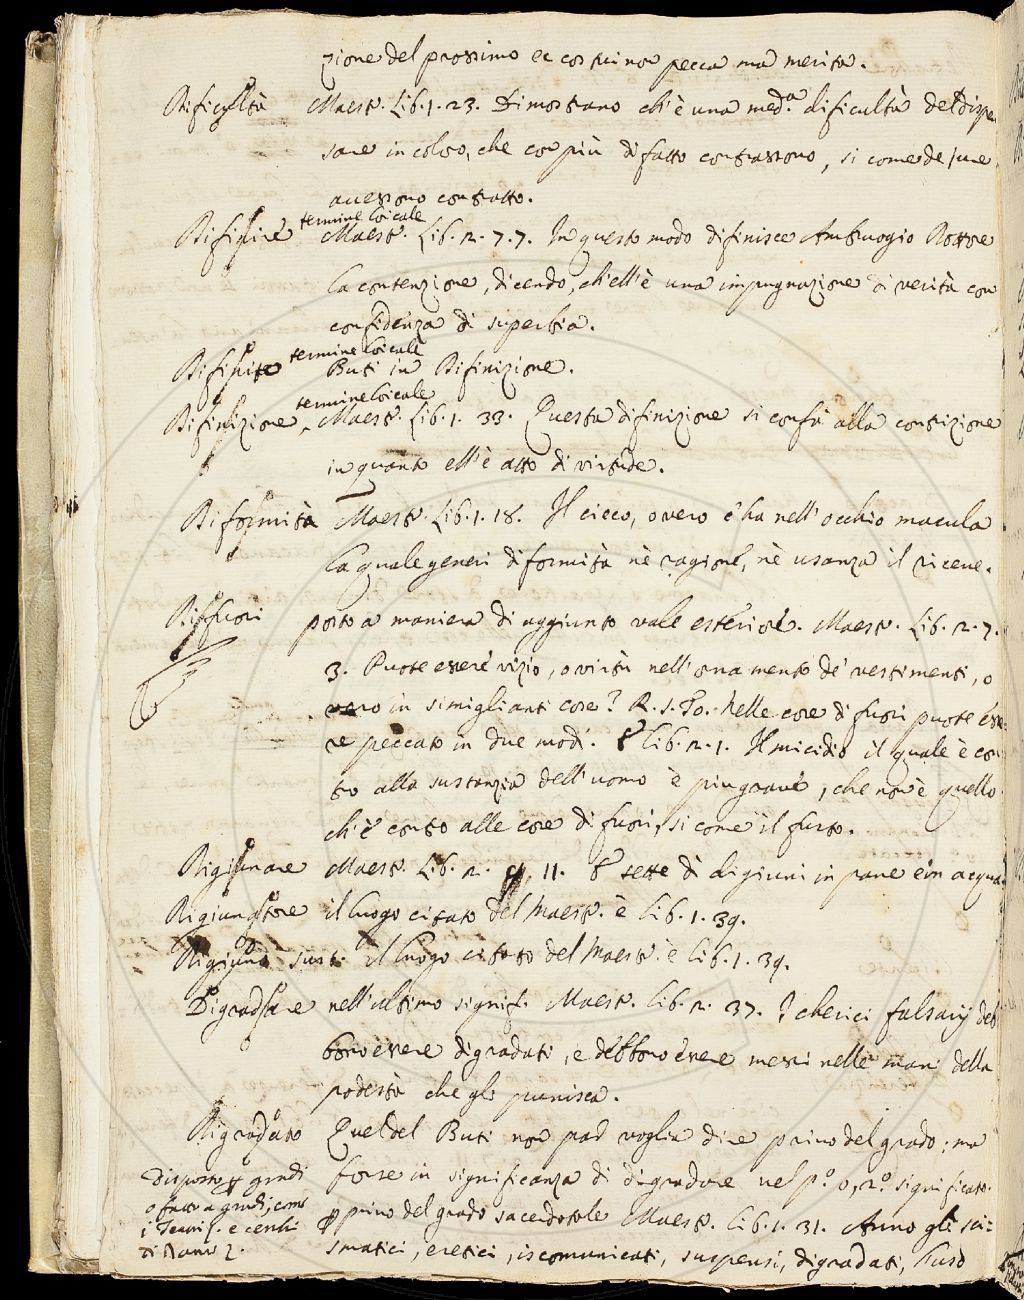 zione del prossimo ec costui non pecca ma merita.
Dificultà Maest. Lib. 1. 23. Dimostrano ch'è una med.ª dificultà del dispen
sare in coloro, che con più di fatto contrassono, si come de jure
avessono contratto.
termine loicale
Difinire Maest. Lib. 2. 7. 7. In questo modo difinisce Ambruogio Dottore
la contenzione, dicendo, ch'ell'è una impugnazione di verità con
confidenza di superbia.
termine loicale
Difinito Buti in Difinizione.
termine loicale
Difinizione Maest. Lib. 1. 33. Questa difinizione si confà alla contrizione
in quanto ell'è atto di virtude.
Diformità Maest. Lib. 1. 18. Il cieco, overo c'ha nell'occhio macula
la quale generi diformità nè ragione, nè usanza il riceve.
Difuori posto a maniera di aggiunto vale esteriore. Maest. Lib. 2. 7.
3. Puote essere vizio, o virtù nell'ornamento de' vestimenti, o
vero in simiglianti cose? R. s. To. Nelle cose di fuori puote esse
re peccato in due modi. E Lib. 2. 1. Il micidio il quale è con
tro alla sustanzia dell'uomo è più grave, che non è quello
ch'è contro alle cose di fuori, si come il furto.
Digiunare Maest. Lib. 2. 11. E sette dì digiuni in pane e in acqua
Digiunatore il luogo citato del Maest. è Lib. 1. 39.
Digiuno sust. il luogo citato del Maest. è Lib. 1. 39.
Digradare nell'ultimo signif. Maest. Lib. 2. 37. I cherici falsarij deb
bono essere digradati, e debbono essere messi nelle mani della
podestà che gli punisca.
Digradato Quel del Buti non par voglia dire privo del grado; ma
Disposto p gradi
forse in significanza di digradare nel p.º o, 2.º significato.
o fatto a gradi; come
p privo del grado sacerdotale Maest. Lib. 1. 31. Anno gli sci=
i
e cerchi
di
smatici, eretici, iscomunicati, suspensi, digradati, l'uso